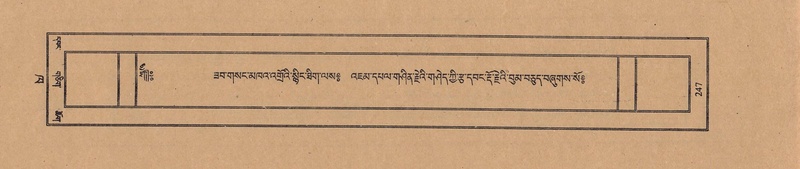 ཟབ་གསང་མཁའ་འགྲོའི་སྙིང་ཐིག་ལས༔ འཇམ་དཔལ་གཤིན་རྗེའི་གཤེད་ཀྱི་རྩ་དབང་རྡོ་རྗེའི་བུམ་བཅུད་བཞུགས་སོ༔
247